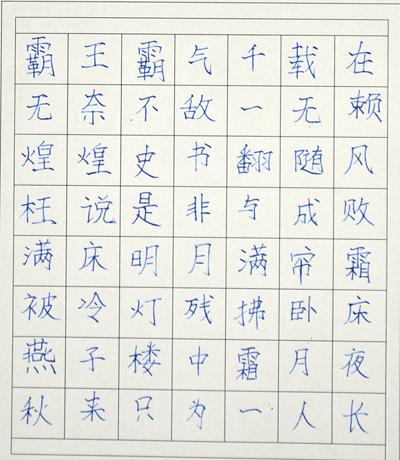 霸王霸气千载在
无奈不敌一无赖
煌煌史书翻随风
枉说是非与成败
满床明月满帘霜
被冷灯残拂卧床
燕子楼中霜月夜
秋来只为一人长